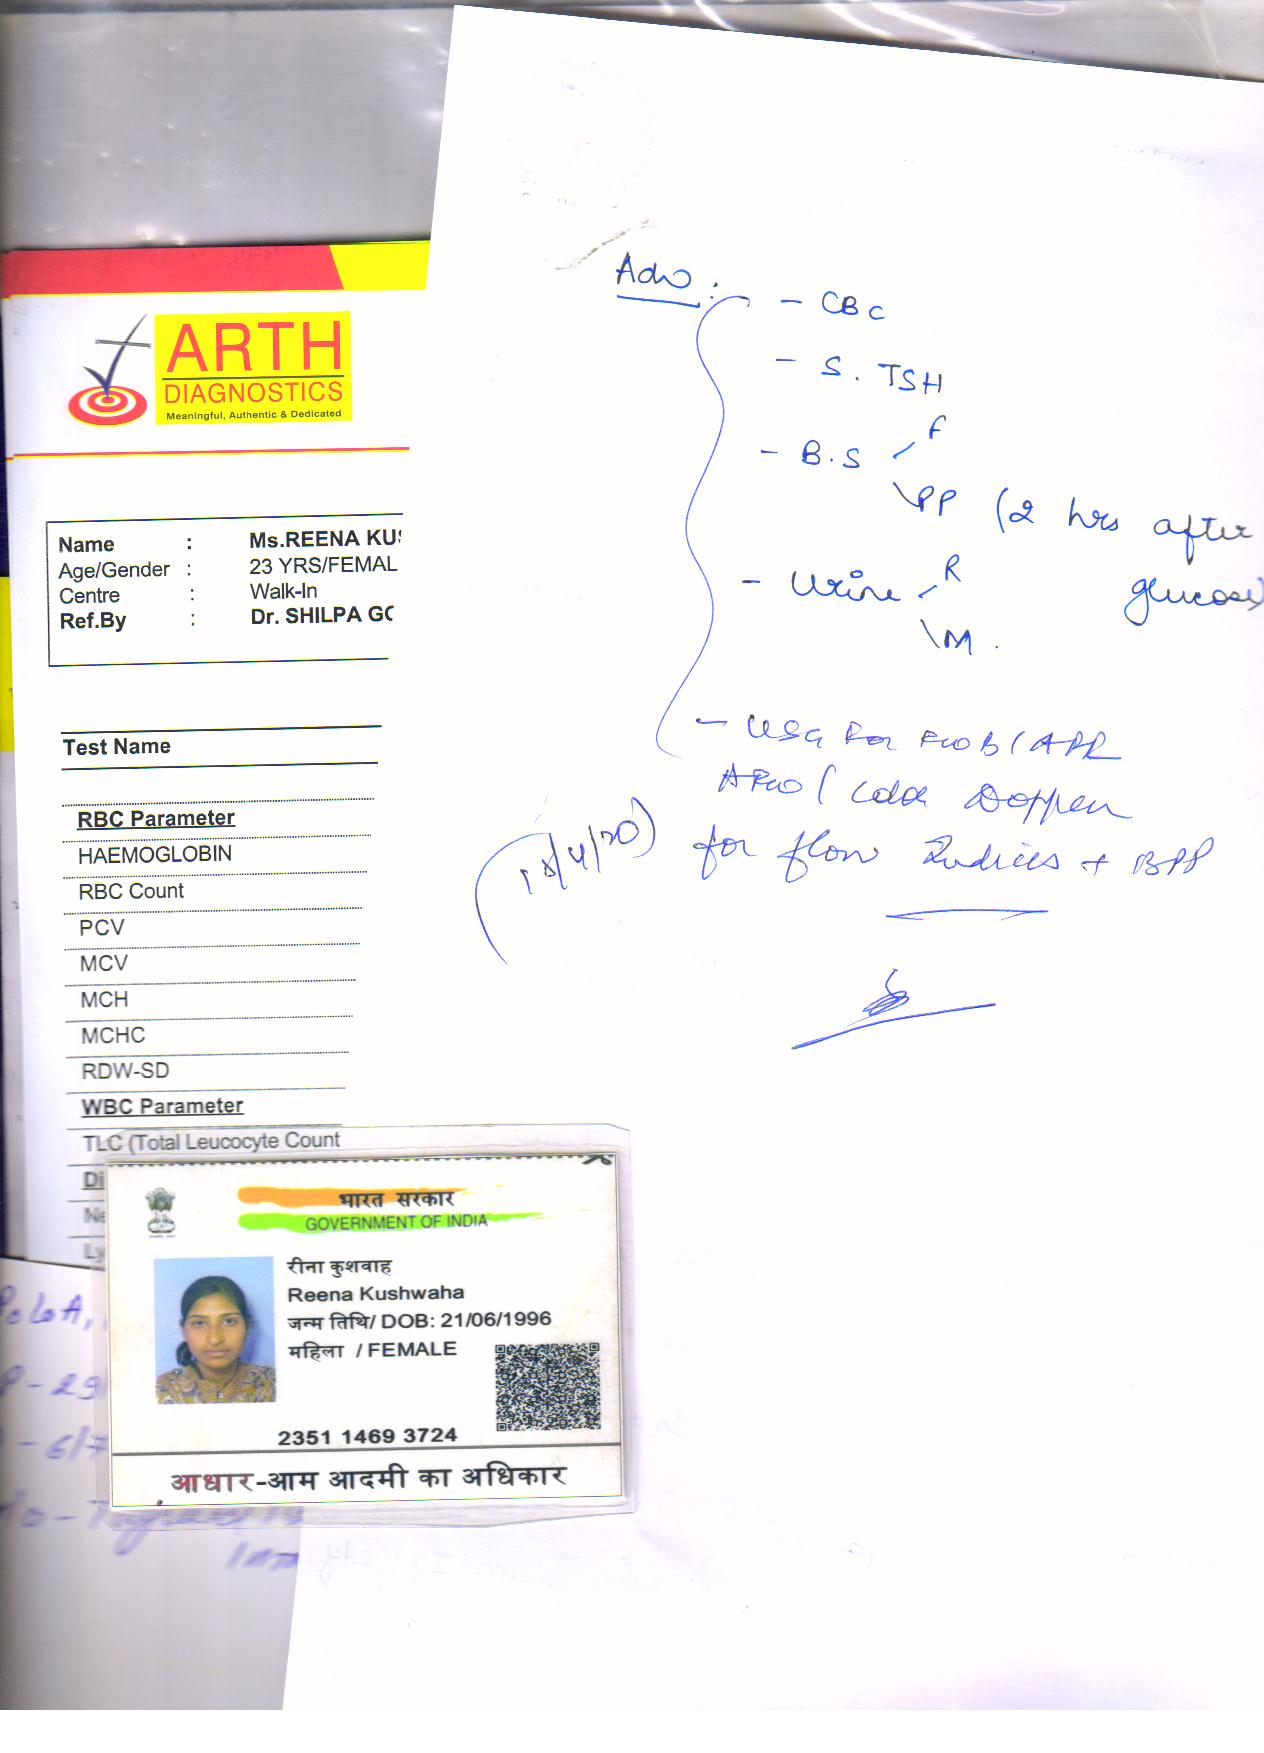 Adv.
- CBC
- S. TSH
- B.S F
PP (2 hrs after glucose)
- Urine R
M.
- USG For FWB / AFI
/ Color Doppler
for flow Indices + BPP
ARTH
DIAGNOSTICS
Meaningful, Authentic & Dedicated
Name : Ms.REENA KUS
Age/Gender : 23 YRS/FEMAL
Centre : Walk-In
Ref.By : Dr. SHILPA GO
Test Name
RBC Parameter
HAEMOGLOBIN
RBC Count
PCV
MCV
MCH
MCHC
RDW-SD
WBC Parameter
TLC (Total Leucocyte Count
Di
Ne
Ly
भारत सरकार
GOVERNMENT OF INDIA
रीना कुशवाह
Reena Kushwaha
जन्म तिथि/ DOB: 21/06/1996
महिला / FEMALE
2351 1469 3724
आधार-आम आदमी का अधिकार